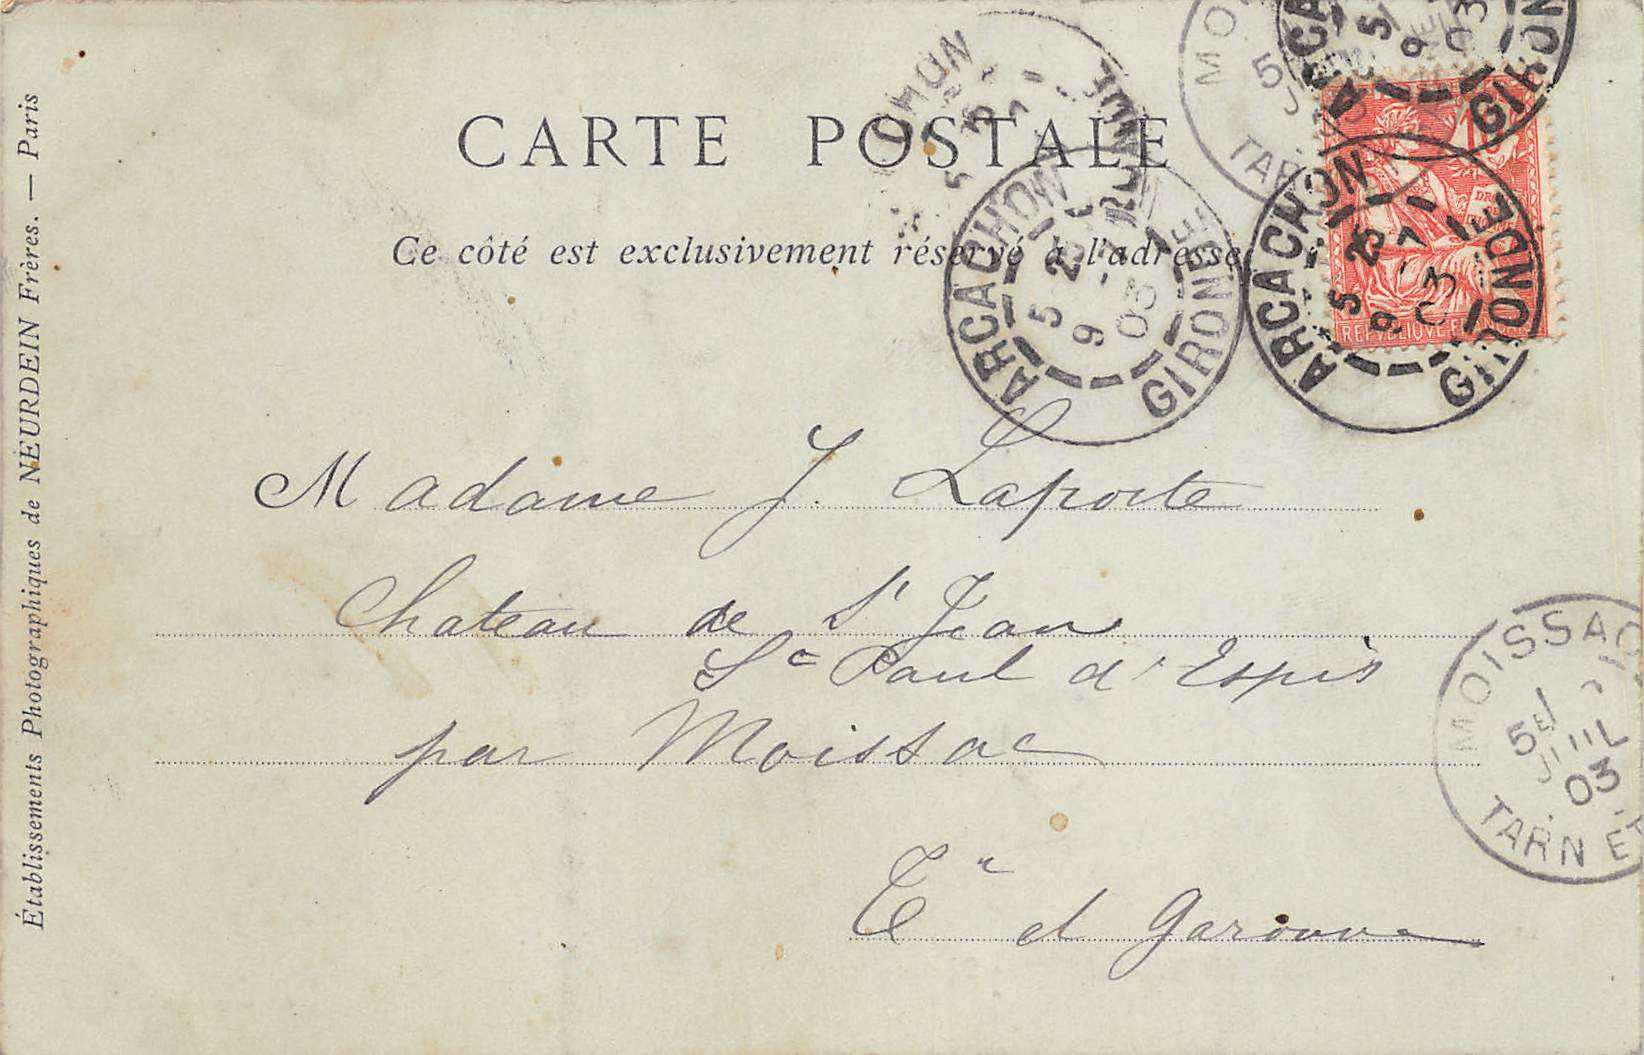 CARTE POSTALE
Ce côté est exclusivement réservé à l'adresse
Établissements Photographiques de NEURDEIN Frères. — Paris
ARCACHON
5 25
9 -7
03
GIRONDE
ARCACHON
5 25
9 -7
03
GIRONDE
REPUBLIQUE
Madame J. Laporte
Chateau de St Jean
Ste Paul d'Espis
par Moissac
Tn et Garonne
MOISSAC
5E
JUIL
03
TARN ET